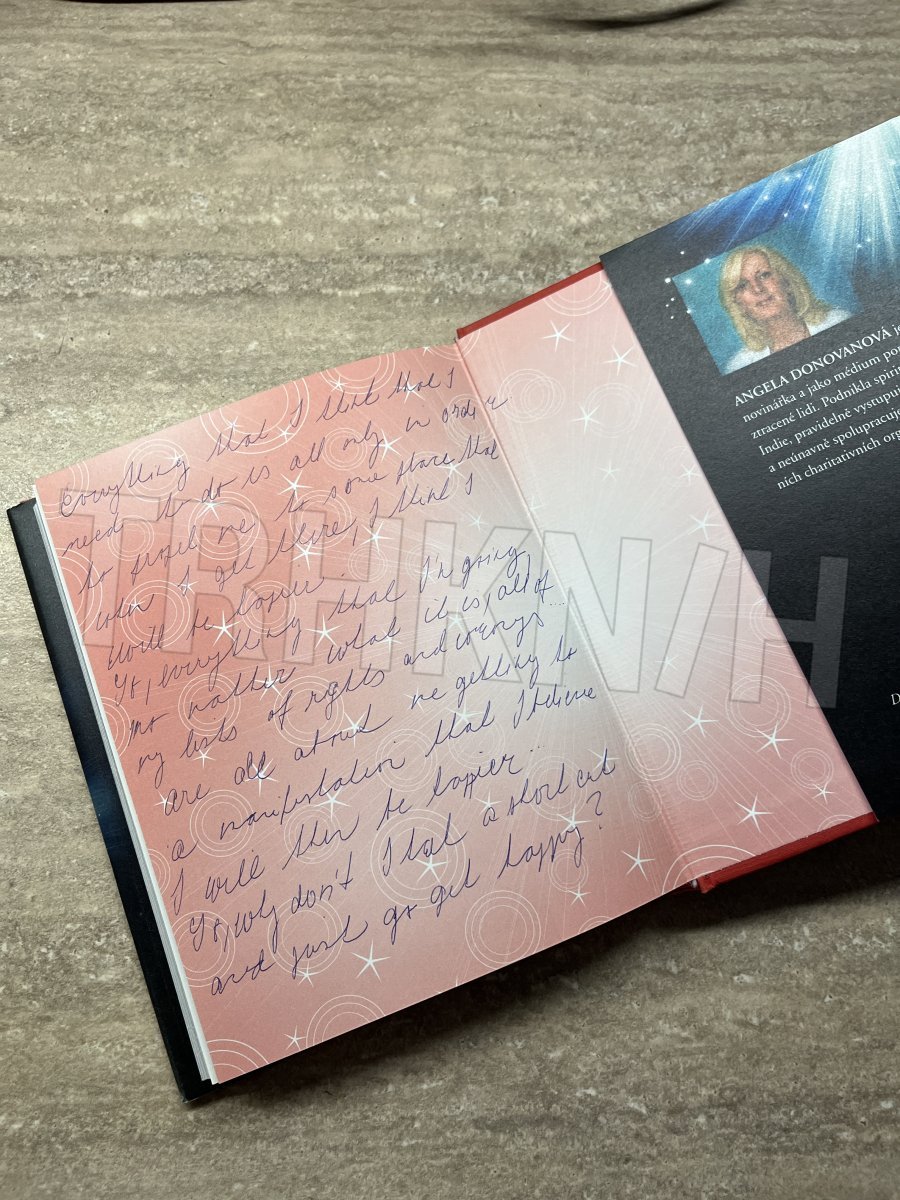 Everything that I think that I
need to do is all only in order
to propel me to some place that
when I get there, I think I
will be happier.
So, everything that I'm going,
no matter what it is, all of
my lists of rights and wrongs...
are all about me getting to
a manifestation that I believe
I will then be happier...
So, why don't I take a short cut
and just go get happy?
ANGELA DONOVANOVÁ je
novinářka a jako médium
ztracené lidi. Podnikla
Indie, pravidelně
a neúnavně
ních charitativních
D
TRHKNIH